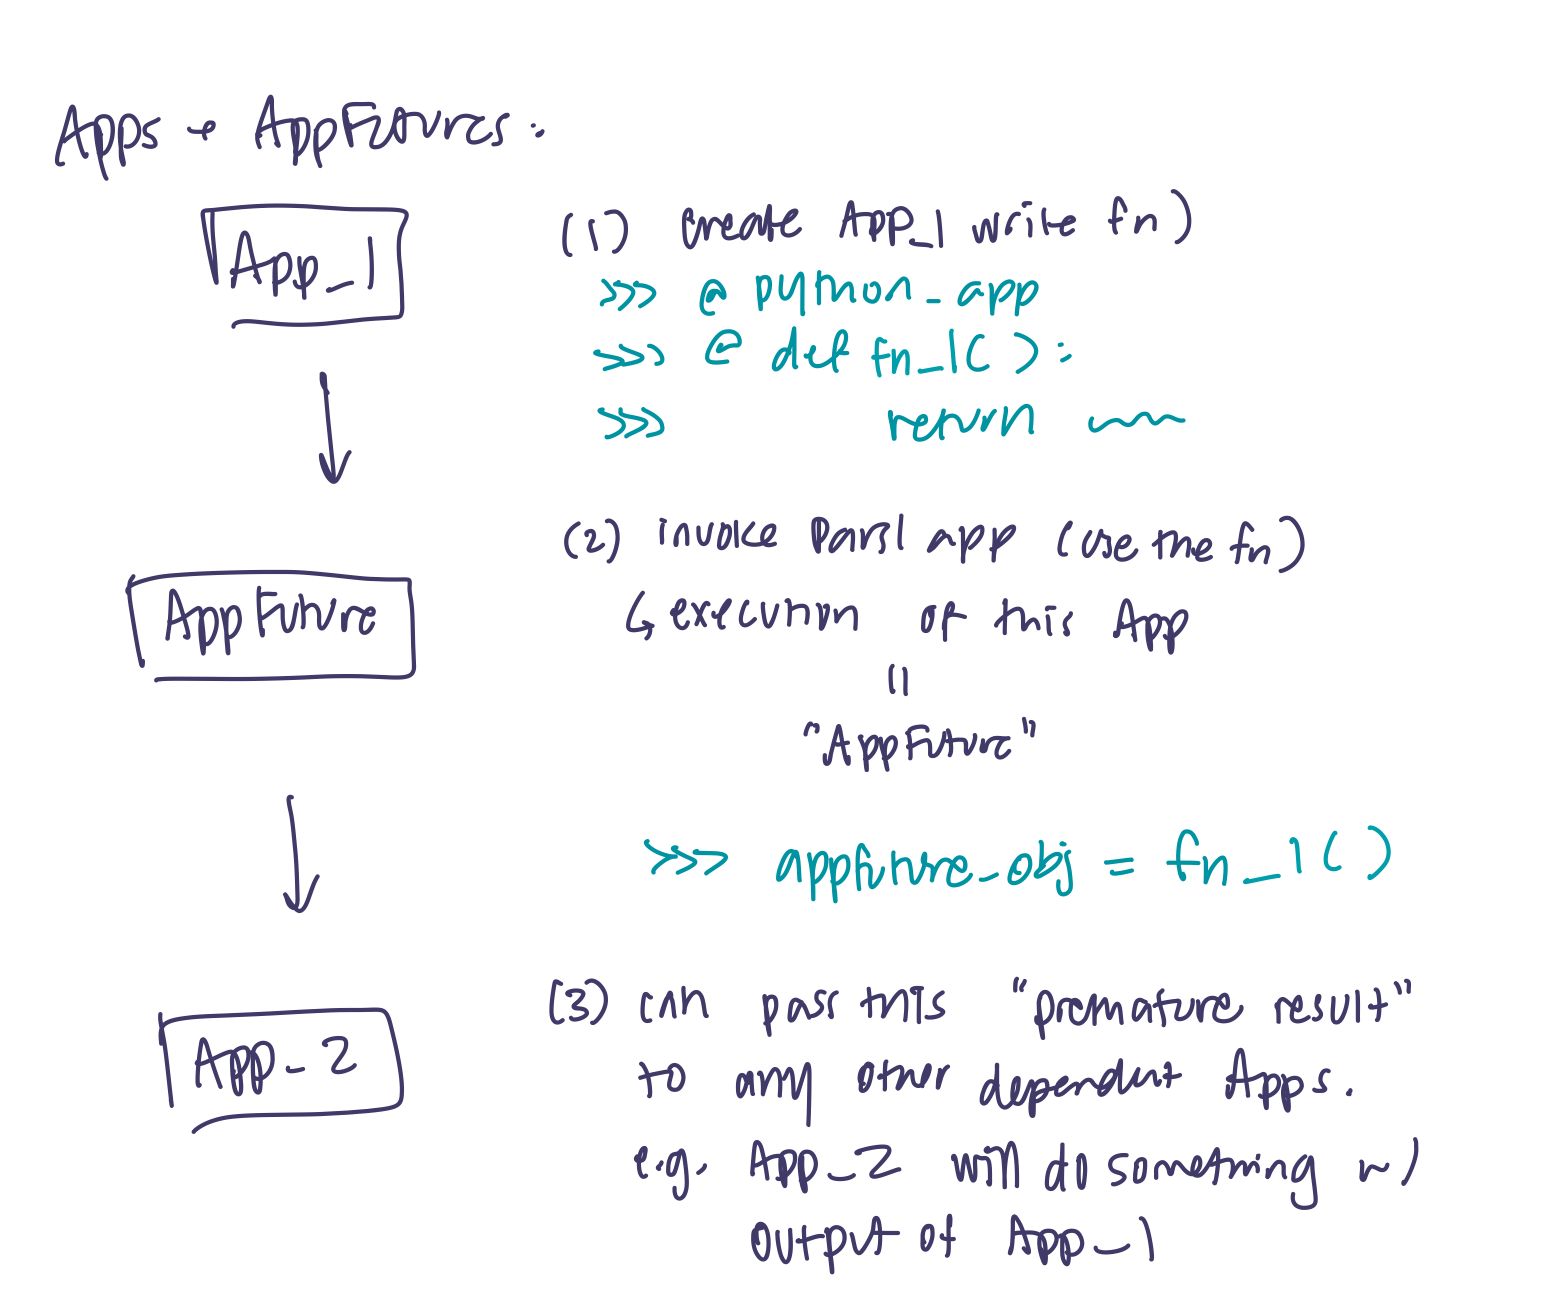 Apps + AppFutures:
App_1
(1) create App_1 write fn)
>>> @python_app
>>> @ def fn_1():
>>> return
AppFuture
(2) invoke Parsl app (use the fn)
↳ execution of this App
=
"AppFuture"
>>> appfuture_obj = fn_1()
App_2
(3) can pass this "premature result"
to any other dependent Apps.
e.g. App_2 will do something w/
output of App_1